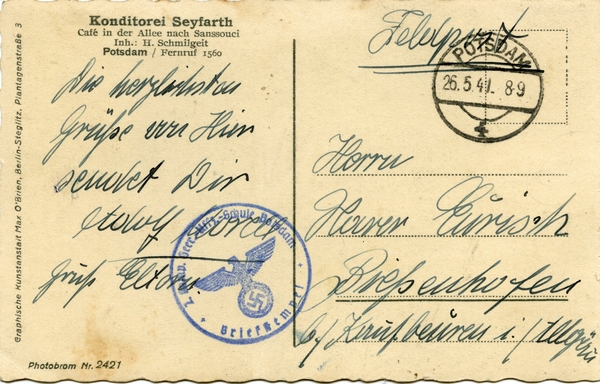 Konditorei Seyfarth
Café in der Allee nach Sanssouci
Inh.: H. Schmilgeit
Potsdam / Fernruf 1560
Die herzlichsten
Grüße von Hier
sendet Dir
Adolf
Gruß Eltern
Feldpost
POTSDAM
26.5.41. 8-9
Herrn
Xaver
Bießenhofen
b/ Kaufbeuren i/ Allgäu
Potsdam
Briefstempel
Graphische Kunstanstalt Max O'Brien, Berlin-Steglitz, Plantagenstraße 3
Photobrom Nr. 2421